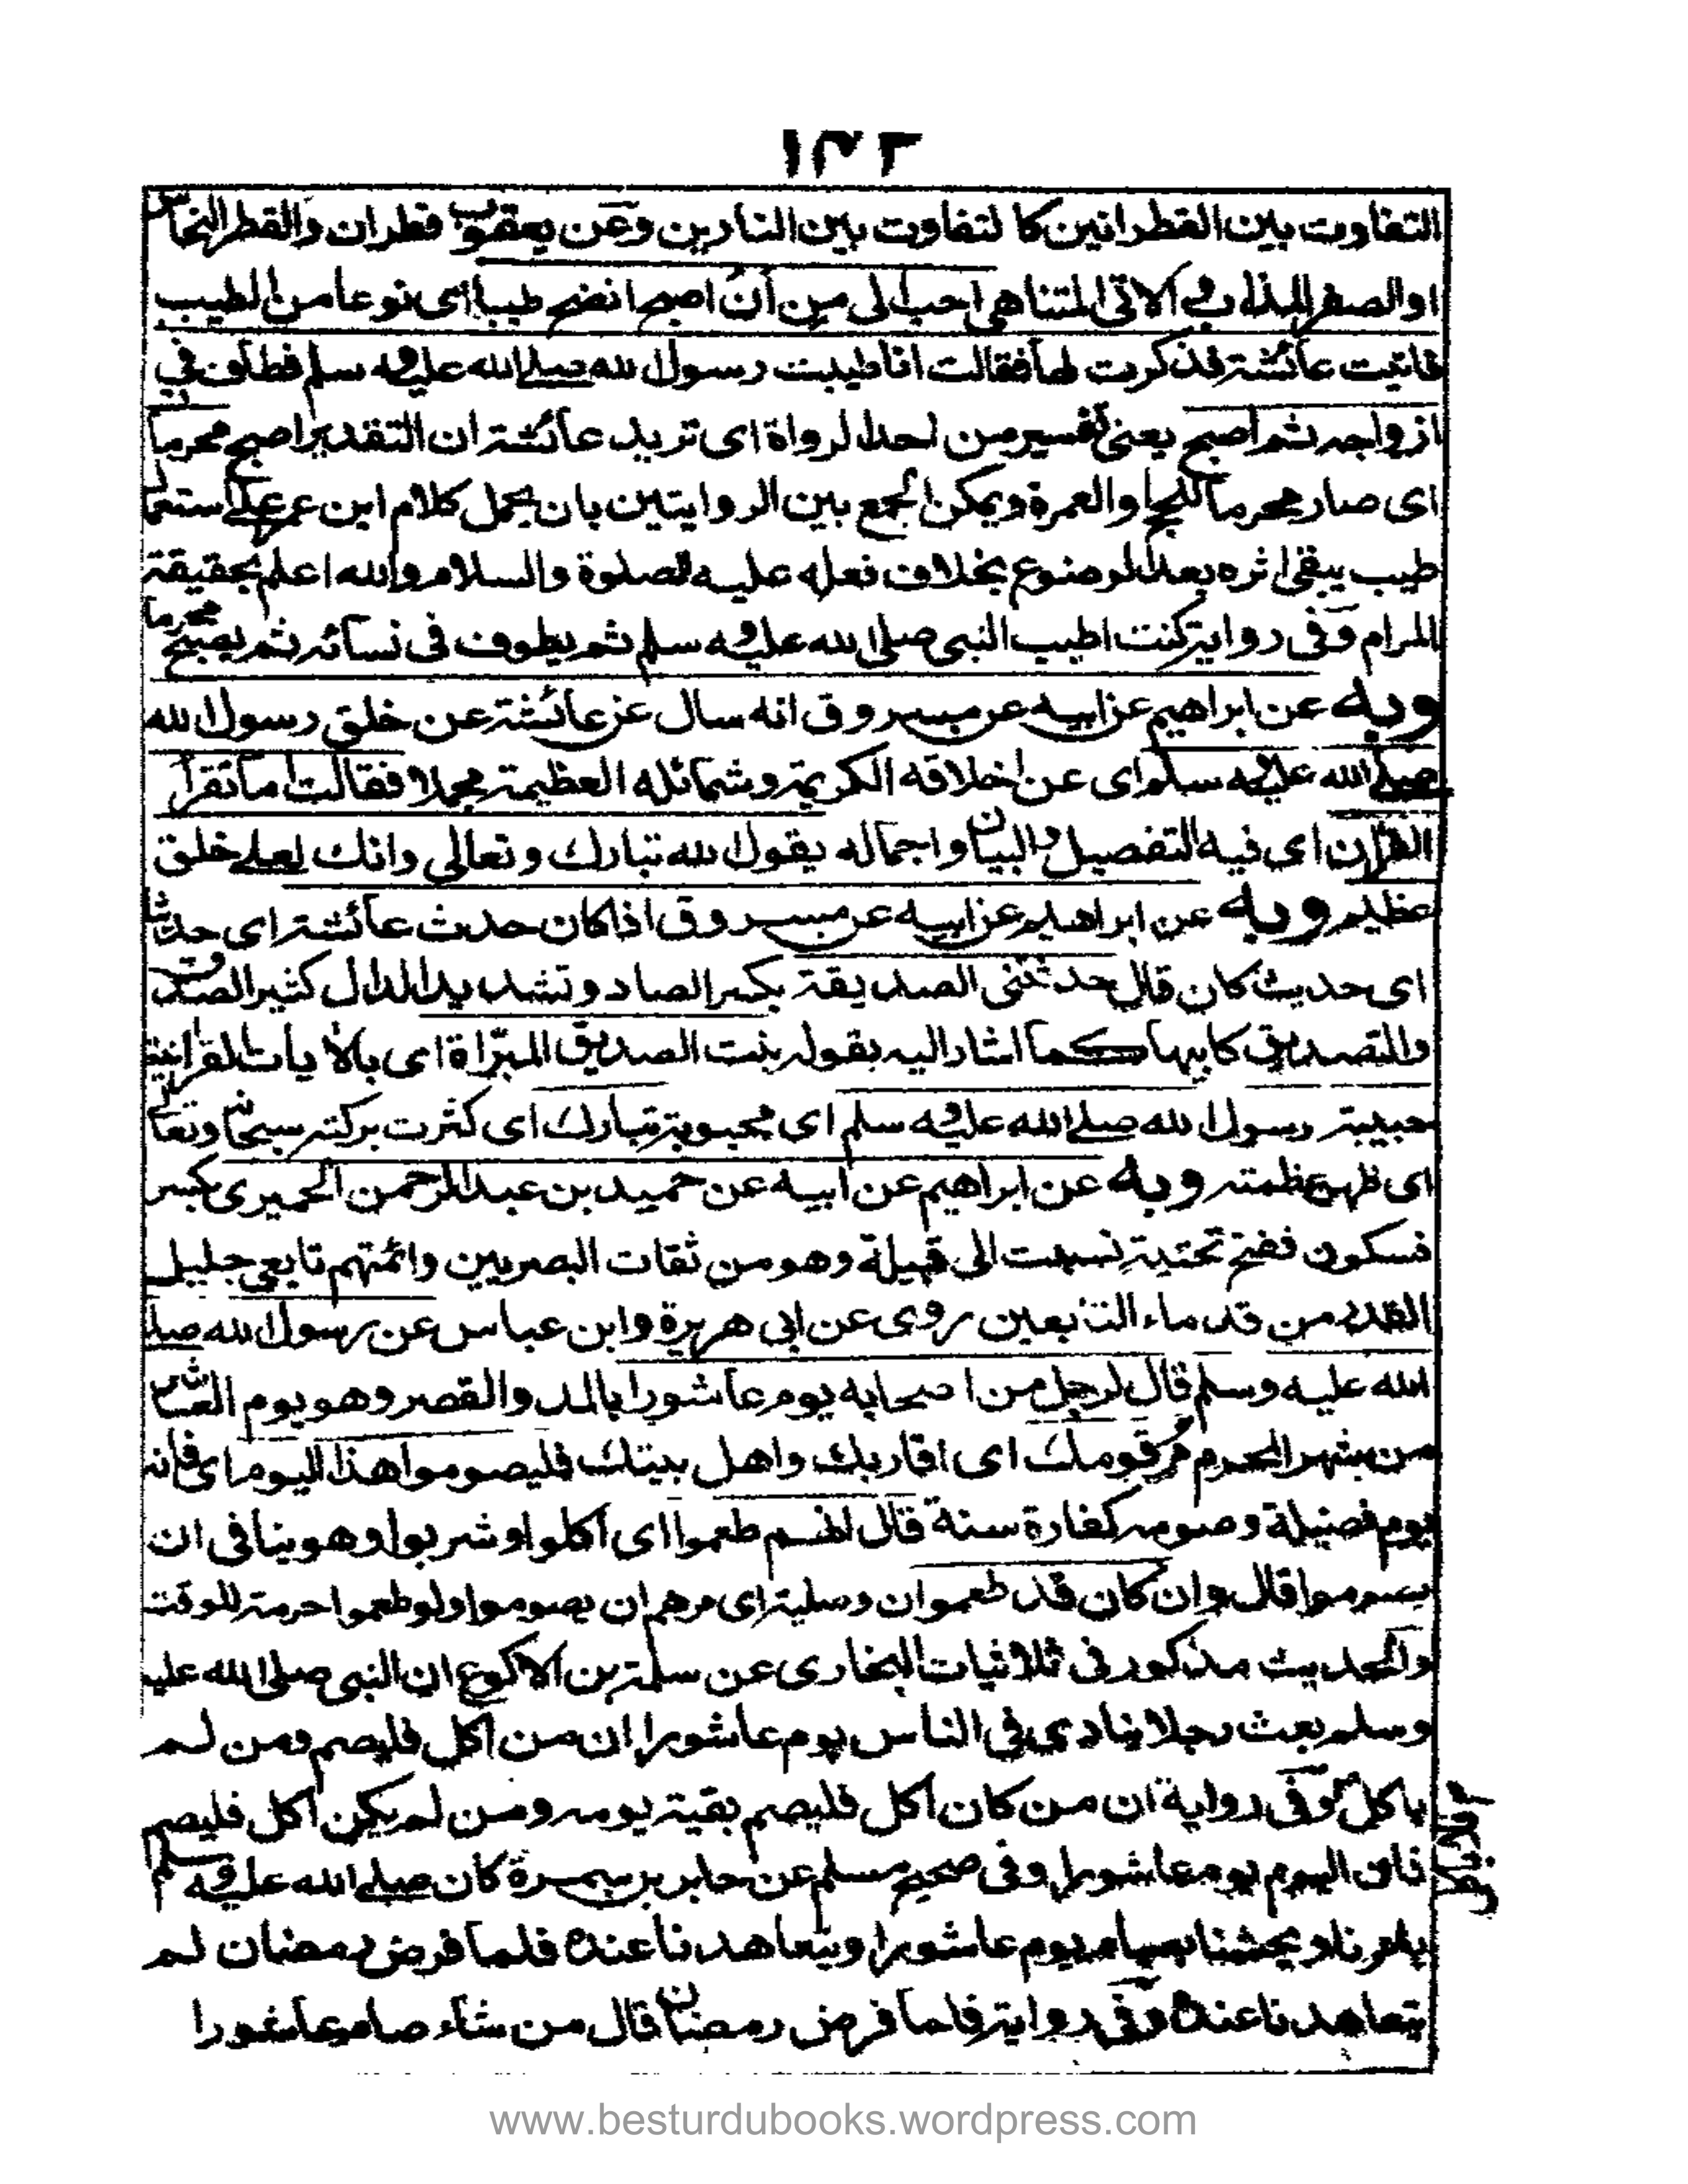 ١٣٢
التفاوت بين القطرانين كالتفاوت بين النارين وعن يعقوب قطران والقطر النحاس
او الصفر المذاب والاتي المتناهي احب الي من أن اصبح انضح طيبا اى نوعا من الطيب
فاتيت عائشة فذكرت لها فقالت انا طيبت رسول الله صلى الله عليه وسلم فطاف في
ازواجه ثم اصبح يعنى تفسير من احد الرواة اى تريد عائشة ان التقدير اصبح محرما
اى صار محرما للحج او العمرة ويمكن الجمع بين الروايتين بان يحمل كلام ابن عمر على استعمال
طيب يبقى اثره بعد الموضوع بخلاف فعله عليه الصلوة والسلام والله اعلم بحقيقة
المرام وفى رواية كنت اطيب النبى صلى الله عليه وسلم ثم يطوف فى نسائه ثم يصبح محرما
وبه عن ابراهيم عن ابيه عن مسروق انه سال عن عائشة عن خلق رسول الله
صلى الله عليه وسلم اى عن اخلاقه الكريمة وشمائله العظيمة مجملا فقالت اما تقرأ
القرآن اى فيه التفصيل والبيان واجماله يقول الله تبارك وتعالى وانك لعلى خلق
عظيم وبه عن ابراهيم عن ابيه عن مسروق اذا كان حدث عائشة اى حديثا
اى حديث كان قال حدثتنى الصديقة بكسر الصاد وتشديد الدال كثير الصدق
والتصديق كابيها كما اشار اليه بقوله بنت الصديق المبرّاة اى بالايات القرانية
حبيبة رسول الله صلى الله عليه وسلم اى محبوبة تبارك اى كثرت بركته سبحانه وتعالى
اى ظهر عظمته وبه عن ابراهيم عن ابيه عن حميد بن عبد الرحمن الحميرى بكسر
فسكون ففتح تحتية نسبت الى قبيلة وهو من ثقات البصريين وائمتهم تابعي جليل
القدر من قدماء التابعين روى عن ابى هريرة وابن عباس عن رسول الله صلى
الله عليه وسلم قال لرجل من اصحابه يوم عاشورا بالمد والقصر وهو يوم العاشر
من شهر المحرم مُر قومك اى اقاربك واهل بيتك فليصوموا هذا اليوم اى فانه
يوم فضيلة وصومه كفارة سنة قال انهم طعموا اى اكلوا وشربوا وهو ينافى ان
يصوموا قال وان كان قد طعموا ان وصلية اى مرهم ان يصوموا ولو طعموا حرمة للوقت
والحديث مذكور فى ثلاثيات البخارى عن سلمة بن الاكوع ان النبى صلى الله عليه
وسلم بعث رجلا ينادى في الناس يوم عاشورا ان من اكل فليصم ومن لم
ياكل وفى رواية ان من كان اكل فليصم بقية يومه ومن لم يكن اكل فليصم
فان اليوم يوم عاشورا وفى صحيح مسلم عن جابر بن سمرة كان صلى الله عليه وسلم
يامرنا ويحثنا بصيام يوم عاشورا ويتعاهدنا عنده فلما فرض رمضان لم
يتعاهدنا عنده وفى رواية فلما فرض رمضان قال من شاء صام عاشورا
www.besturdubooks.wordpress.com